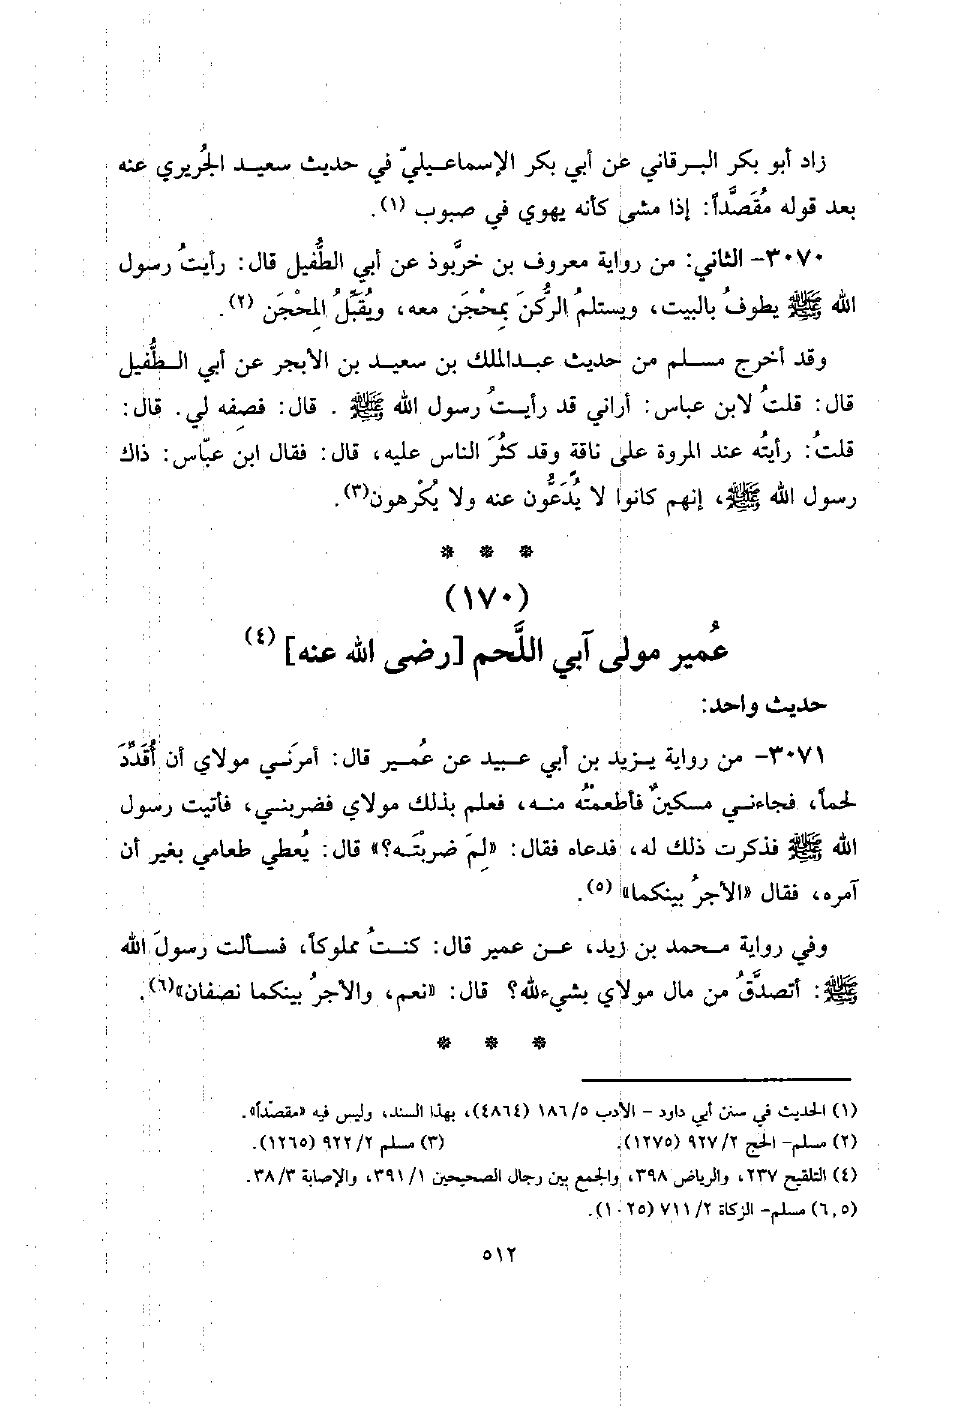 زاد أبو بكر البـرقاني عن أبي بكر الإسماعـيليّ في حديث سعيـد الجُريري عنه
بعد قوله مُقَصَّداً: إذا مشى كأنه يهوي في صبوب (١).
٣٠٧٠- الثاني: من رواية معروف بن خرَّبوذ عن أبي الطُّفيل قال: رأيتُ رسول
الله ﷺ يطوفُ بالبيت، ويستلمُ الرُّكنَ بِمحْجَن معه، ويُقَبِّلُ المِحْجَن (٢).
وقد أخرج مسـلم من حديث عبـدالملك بن سعيـد بن الأبجر عن أبي الـطُّفيل
قال: قلتُ لابن عباس: أراني قد رأيـتُ رسول الله ﷺ . قال: فصِفه لي. قال:
قلتُ: رأيتُه عند المروة على ناقة وقد كثُرَ الناس عليه، قال: فقال ابن عبّاس: ذاك
رسول الله ﷺ، إنهم كانوا لا يُدَعُّون عنه ولا يُكْرهون(٣).
* * *
(١٧٠)
عُمير مولى آبي اللَّحم [رضى الله عنه] (٤)
حديث واحد:
٣٠٧١- من رواية يـزيد بن أبي عـبيد عن عُمـير قال: أمرَنـي مولاي أن أُقَدِّدَ
لحماً، فجاءنـي مسكينٌ فأطعمْتُه منـه، فعلم بذلك مولاي فضربنـي، فأتيت رسول
الله ﷺ فذكرت ذلك له، فدعاه فقال: «لِمَ ضربْتَـه؟» قال: يُعطي طعامي بغير أن
آمره، فقال «الأجرُ بينكما» (٥).
وفي رواية محمد بن زيد، عـن عمير قال: كنـتُ مملوكاً، فسـألت رسولَ الله
ﷺ: أتصدَّقُ من مال مولاي بشيءلله؟ قال: «نعم، والأجرُ بينكما نصفان»(٦).
* * *
(١) الحديث في سنن أبي داود - الأدب ٥/ ١٨٦ (٤٨٦٤)، بهذا السند، وليس فيه «مقصّداً».
(٢) مسلم- الحج ٢/ ٩٢٧ (١٢٧٥). (٣) مسلم ٢/ ٩٢٢ (١٢٦٥).
(٤) التلقيح ٢٣٧، والرياض ٣٩٨، والجمع بين رجال الصحيحين ١/ ٣٩١، والإصابة ٣/ ٣٨.
(٦,٥) مسلم- الزكاة ٢/ ٧١١ (١٠٢٥).
٥١٢